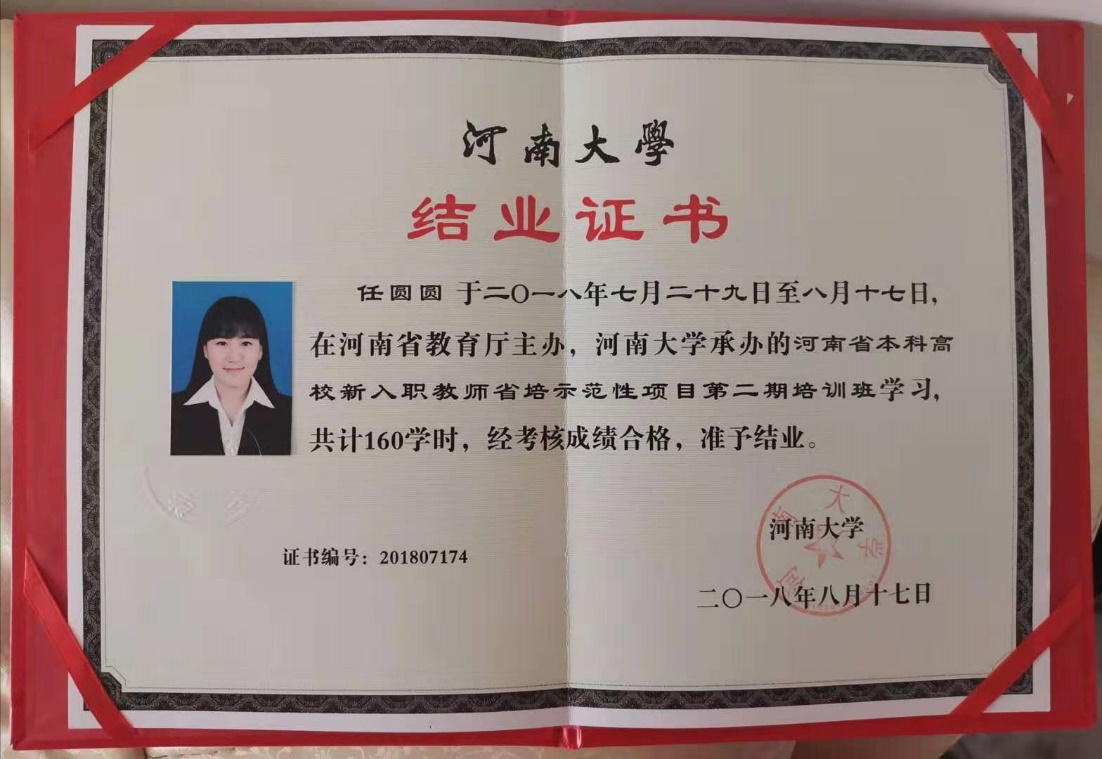 河南大學
结业证书
任圆圆 于二〇一八年七月二十九日至八月十七日,
在河南省教育厅主办，河南大学承办的河南省本科高
校新入职教师省培示范性项目第二期培训班学习,
共计160学时，经考核成绩合格，准予结业。
河南大学
河南大学
证书编号：201807174
二〇一八年八月十七日